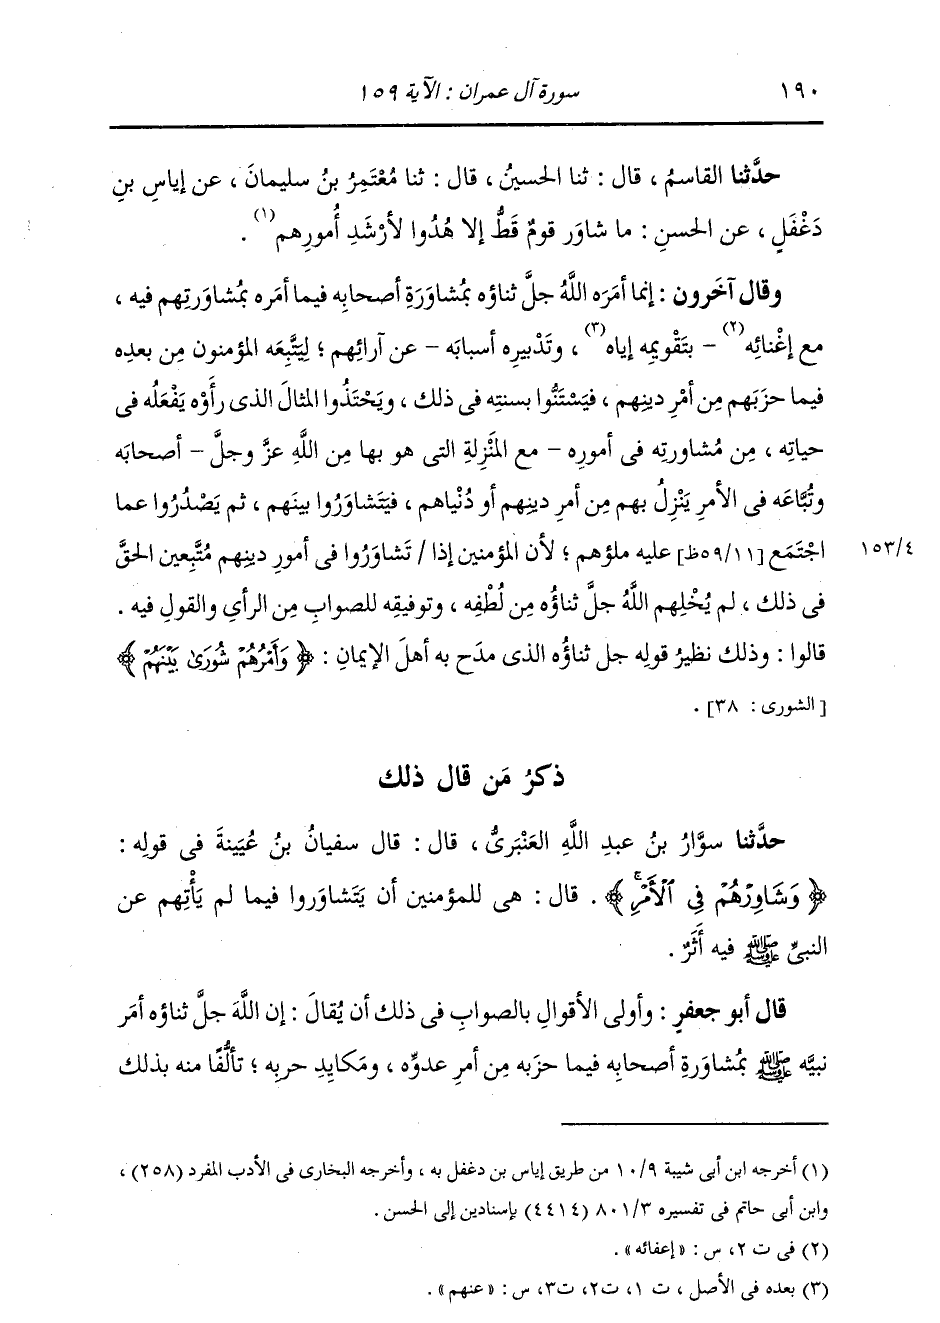 ١٩٠ سورة آل عمران : الآية ١٥٩
حدَّثنا القاسمُ ، قال : ثنا الحسينُ ، قال : ثنا مُعْتَمِرُ بنُ سليمانَ ، عن إياسِ بنِ
دَغْفَلٍ ، عن الحسنِ : ما شاوَر قومٌ قَطُّ إلا هُدُوا لأرْشَدِ أُمورِهم(١) .
وقال آخَرون : إنما أمَرَه اللَّهُ جلَّ ثناؤه بمُشاوَرَةِ أصحابِه فيما أمَره بمُشاوَرتِهم فيه ،
مع إغْنائِه(٢) – بتَقْويمِه إياه(٣) ، وتَدْبيرِه أسبابَه – عن آرائِهم ؛ لِيَتَّبِعَه المؤمنون مِن بعدِه
فيما حزَبَهم مِن أمْرِ دينِهم ، فيَسْتَنُّوا بسنتِه فى ذلك ، ويَحْتَذُوا المثالَ الذى رأَوْه يَفْعَلُه فى
حياتِه ، مِن مُشاورتِه فى أمورِه – مع المَنْزِلةِ التى هو بها مِن اللَّهِ عزَّ وجلَّ – أصحابَه
وتُبَّاعَه فى الأمرِ يَنْزِلُ بهم مِن أمرِ دينِهم أو دُنْياهم ، فيَتَشاوَرُوا بينَهم ، ثم يَصْدُرُوا عما
اجْتَمَع [٥٩/١١ظ] عليه ملؤهم ؛ لأن المؤمنين إذا / تَشاوَرُوا فى أمورِ دينِهم مُتَّبِعين الحقَّ ١٥٣/٤
فى ذلك ، لم يُخْلِهم اللَّهُ جلَّ ثناؤُه مِن لُطْفِه ، وتوفيقِه للصوابِ مِن الرأيِ والقولِ فيه .
قالوا : وذلك نظيرُ قولِه جل ثناؤُه الذى مدَح به أهلَ الإيمانِ : ﴿ وَأَمْرُهُمْ شُورَىٰ بَيْنَهُمْ ﴾
[ الشورى : ٣٨] .
ذكرُ مَن قال ذلك
حدَّثنا سوَّارُ بنُ عبدِ اللَّهِ العَنْبَرىُّ ، قال : قال سفيانُ بنُ عُيَينةَ فى قولِه :
﴿ وَشَاوِرْهُمْ فِى ٱلْأَمْرِۖ ﴾ . قال : هى للمؤمنين أن يَتَشاوَروا فيما لم يَأْتِهم عن
النبىِّ ﷺ فيه أَثَرٌ .
قال أبو جعفرٍ : وأولى الأقوالِ بالصوابِ فى ذلك أن يُقالَ : إن اللَّهَ جلَّ ثناؤه أمَر
نبيَّه ﷺ بمُشاوَرةِ أصحابِه فيما حزَبه مِن أمرِ عدوِّه ، ومَكايِدِ حربِه ؛ تألُّفًا منه بذلك
(١) أخرجه ابن أبى شيبة ١٠/٩ من طريق إياس بن دغفل به ، وأخرجه البخارى فى الأدب المفرد (٢٥٨) ،
وابن أبى حاتم فى تفسيره ٨٠١/٣ (٤٤١٤) بإسنادين إلى الحسن .
(٢) فى ت ٢، س : « إعفائه» .
(٣) بعده فى الأصل ، ت ١، ت٢، ت٣، س : « عنهم» .